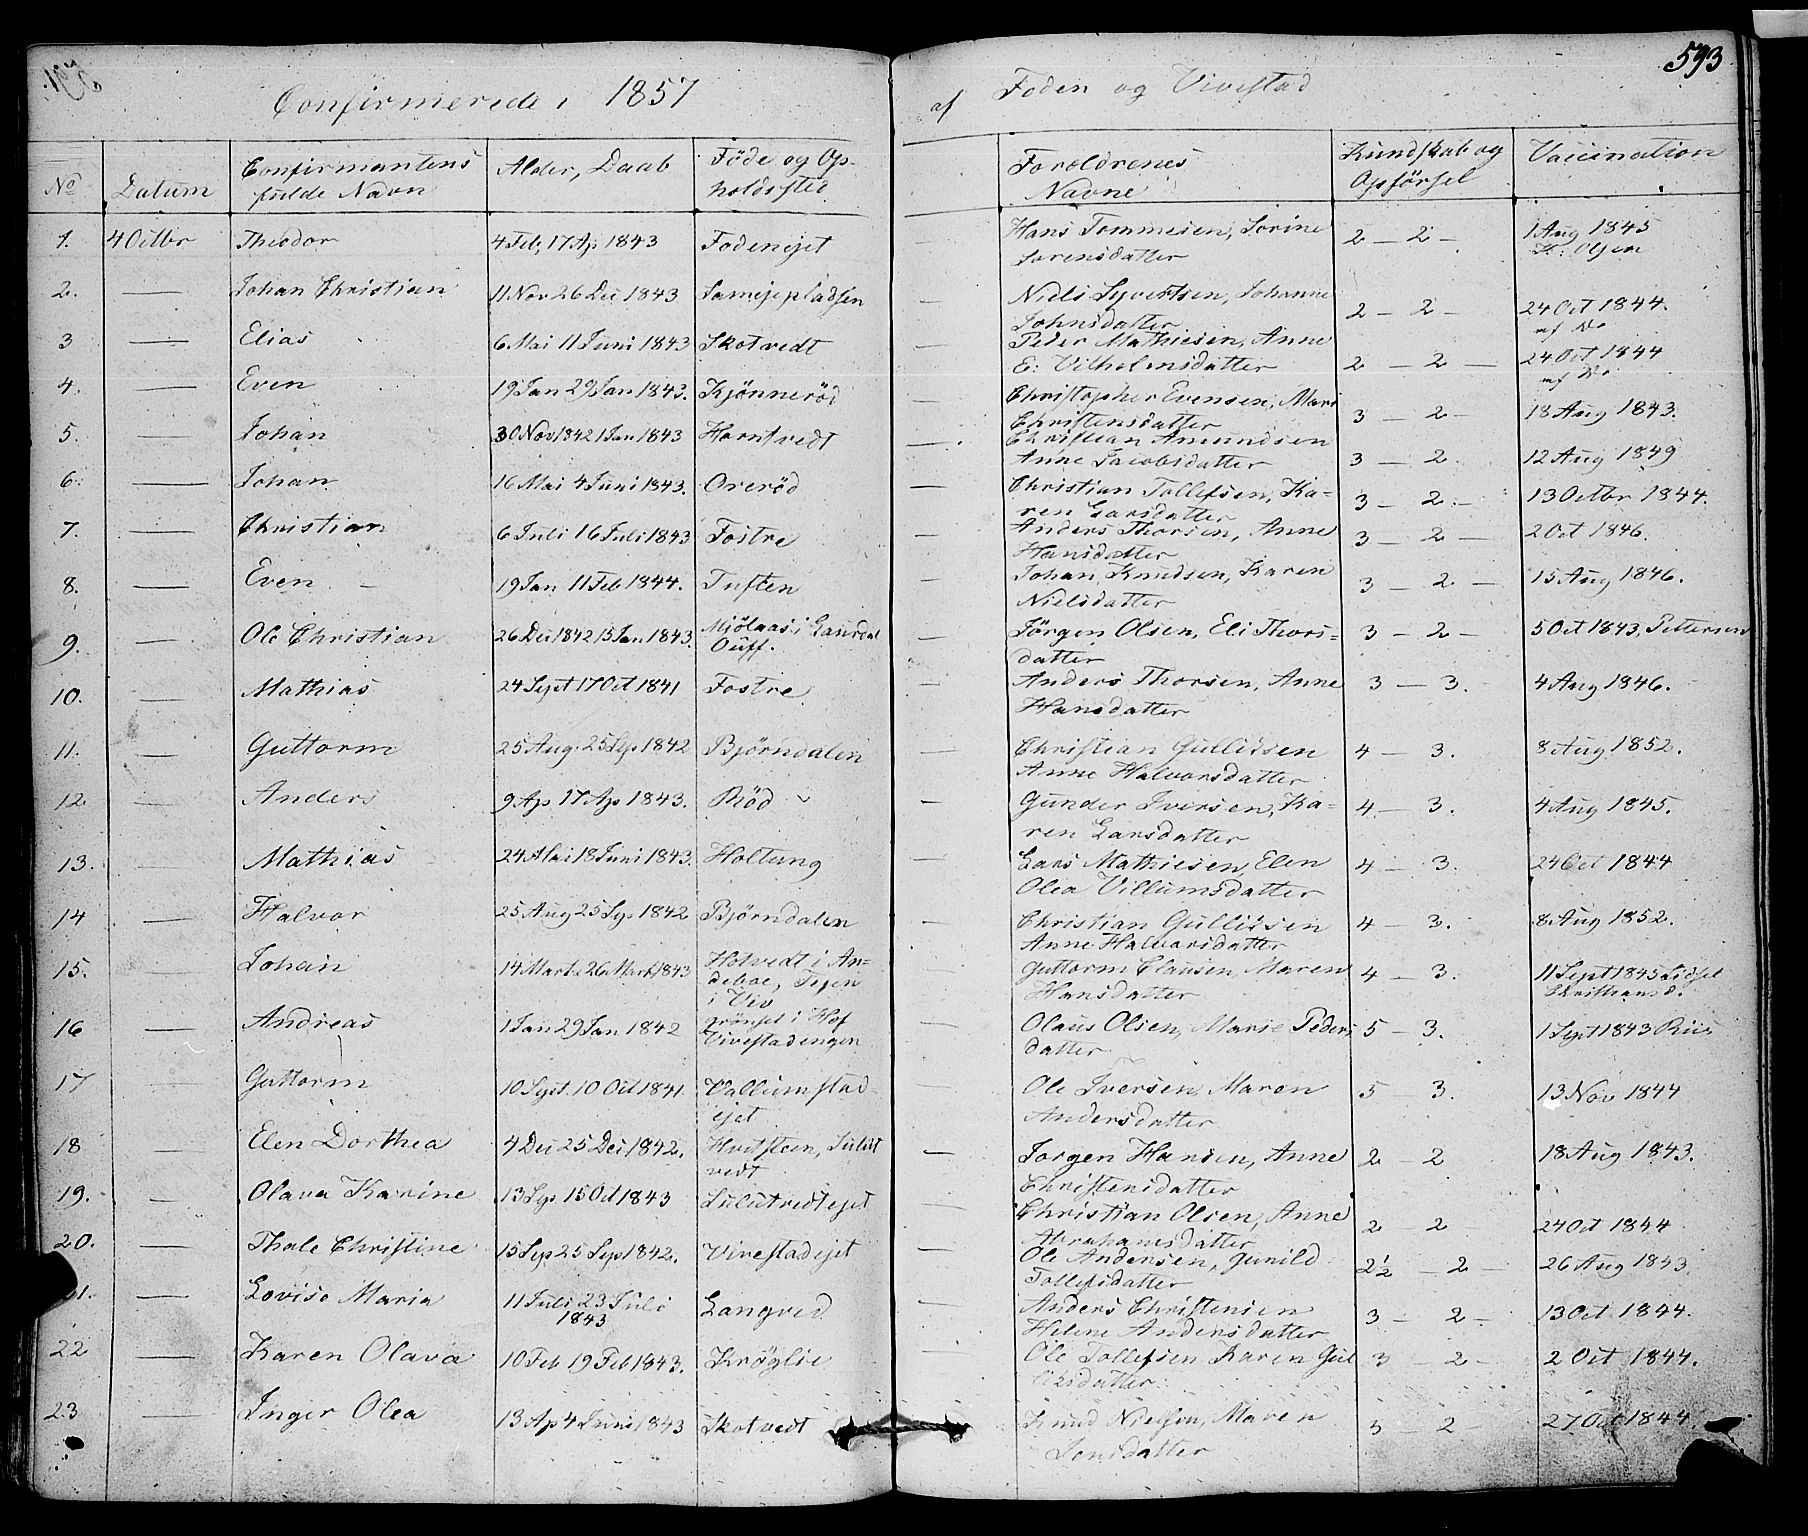 593
Confirmerede i 1857 af Foden og Vivestad
No Datum Confirmantens fulde Navn Alder, Daab Föde og Opholdssted Foroldrenes Navne Kundskab og Opförsel Vaccination
1. 4 Octbr Theodor 4 Feb, 17 Ap 1843 Fodenejet Hans Tommesen, Sorine 2 — 2 — 1 Aug 1845
Sorensdatter Olsen
2. — Johan Christian 11 Nov 26 Dec 1843 — Niels Syvertsen, Johanne 2 — 2 — 24 Oct 1844.
Johnsdatter af Do
3 — Elias 6 Mai 11 Juni 1843 Skotvedt Peder Mathiesen, Anne
E: Vilhelmsdatter 2 — 2 — 24 Oct 1844
af Do
4. — Even 19 Jan 29 Jan 1843. Kjönneröd — Christopher Evensen, Mari
Christensdatter 3 — 2 — 18 Aug 1843.
5. — Johan 30 Nov 1842 1 Jan 1843 Horntvedt — Christian Amundsen
Anne Jacobsdatter 3 — 2. 12 Aug 1849
6. — Johan 16 Mai 4 Juni 1843. Oreröd — Christian Tollefsen, Ka-
ren Larsdatter 3 — 2. — 13 Octbr 1844.
7. — Christian 6 Juli 16 Juli 1843 Fostre — Anders Thorsen, Anne
Hansdatter 3 — 2 — 2 Oct 1846.
8. — Even 19 Jan 11 Feb 1844. Tuften — Johan Knudsen, Karen
Nielsdatter 3 — 2. — 15 Aug 1846.
9. — Ole Christian 26 Dec 1842 15 Jan 1843. Mjölaas i Laurdal — Jörgen Olsen, Eli Thors= 3 — 2 — 5 Oct 1843, Pettersen
datter
10. — Mathias 24 Sept 17 Oct 1841 Fostre — Anders Thorsen, Anne 3 — 3. 4 Aug 1846.
Hansdatter
11. — Guttorm 25 Aug. 25 Sep 1842 Björndalen — Christian Gullissen 4 — 3. 8 Aug 1852.
Anne Halvorsdatter
12 — Anders 9 Ap 17 Ap 1843. Röd — Gunder Iversen, Ka- 4 — 3. 4 Aug 1845.
ren Larsdatter
13. — Mathias 24 Mai 18 Juni 1843. Holtung — Lars Mathiesen, Elen 4 — 3. 24 Oct 1844
Olea Villumsdatter
14 — Halvor 25 Aug 25 Sep 1842 Björndalen — Christian Gullissen 4 — 3. 8. Aug 1852.
Anne Halvorsdatter
15. — Johan 14 Marts 26 Marts 1843 Holvedt i An= — Guttorm Clausen, Maren 4 — 3. 11 Sept 1845
deboe, i Viv Hansdatter Christiansd.
16 — Andreas 1 Jan 29 Jan 1842 i Hof — Olaus Olsen, Marie Peders 5 — 3. 1 Sept 1843
Vivestadengen datter
17 — Guttorm 10 Sept. 10 Oct 1841. Vallumstad- — Ole Iversen Maren 5 — 3. 13 Nov 1844
ejet Andersdatter
18 — Elen Dorthea 4 Dec 25 Dec 1842. Hvitsteen, Sulut — Jorgen Hansen, Anne 2 — 2 18 Aug 1843.
vedt Christensdatter
19. — Olava Karine 13 Sep 15 Oct 1843 Sulutvedtejet — Christian Olsen, Anne 2 — 2 — 24 Oct 1844
Abrahamsdatter
20. — Thale Christine 15 Sep 25 Sep 1842. Vivestadejet — Ole Andersen, Gunild 2½ — 2 — 26 Aug 1843.
Tollefsdatter
1. — Lovise Maria 11 Juli 23 Juli Langved — Anders Christensen 3 — 2 — 13 Oct 1844.
1843 Helene Andersdatter
22 — Karen Olava 10 Feb 19 Feb 1843. Kröglie — Ole Tollefsen Karen Gul 3 2 — 2 Oct 1844.
liksdatter
23 — Inger Olea 13 Ap 4 Juni 1843 Skotvedt Knud Nielsen, Maren 3 — 2 27 Oct 1844.
Jensdatter